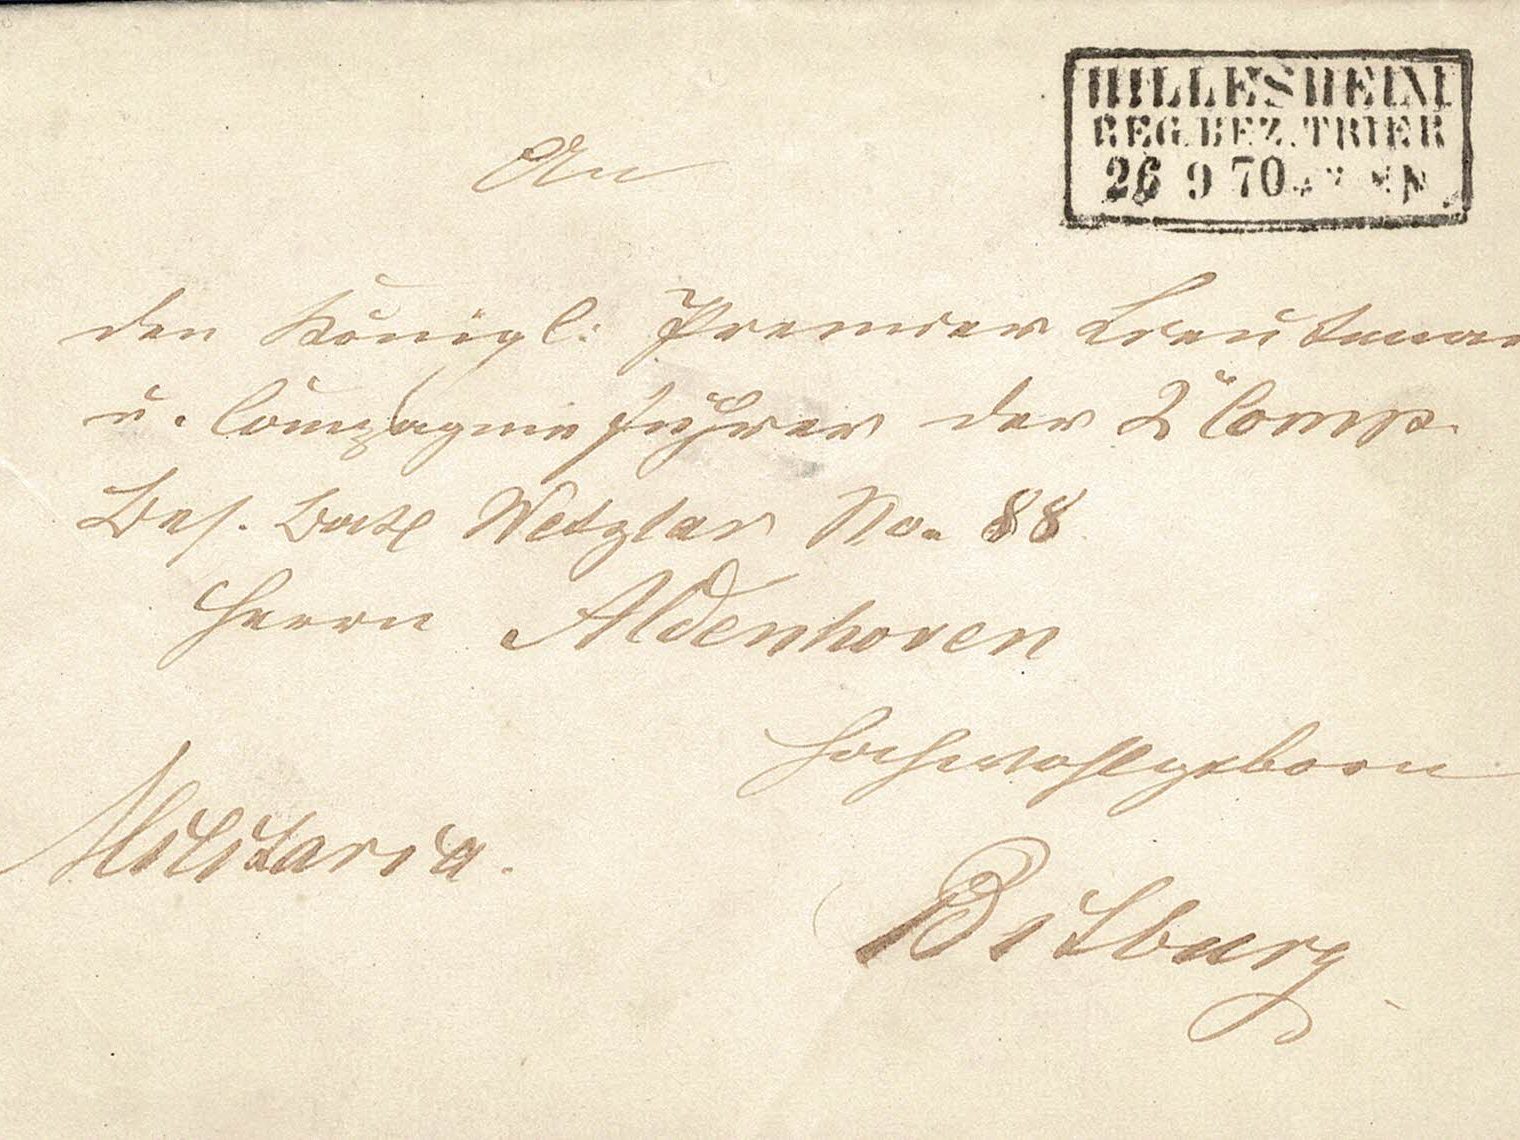 HILLESHEIM
REG.BEZ.TRIER
26 9 70
An
den Königl: Premier Lieutenan
u. Compagnieführer der 2ⁿ Comp.
Bes. Batl Wetzlar No. 88
Herrn Aldenhoven
Hochwohlgeborn
Militaria.
Bitburg